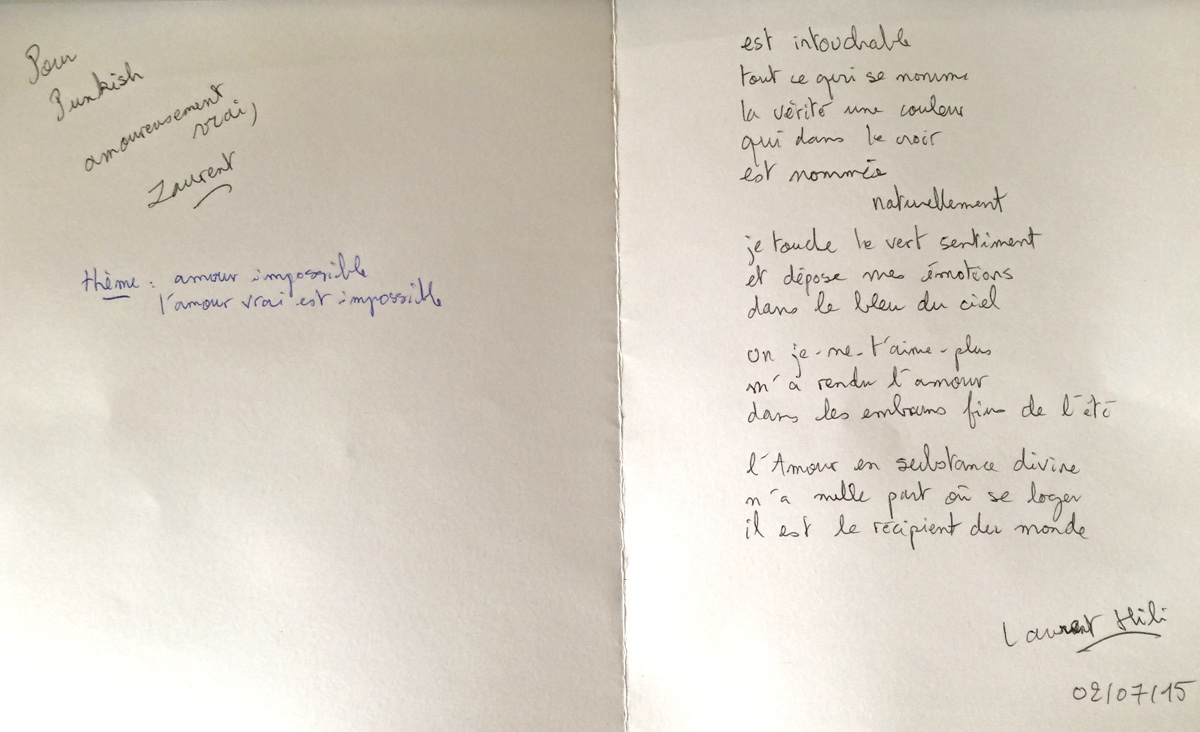 Pour
Punkish
amoureusement
vrai,
Laurent
thème : amour impossible
l'amour vrai est impossible
est intouchable
tout ce qui se nomme
la vérité une couleur
qui dans le croir
est nommée
naturellement
je touche le vert sentiment
et dépose mes émotions
dans le bleu du ciel
On je-ne-t'aime-plus
m'a rendu l'amour
dans les embruns fins de l'été
l'Amour en substance divine
n'a nulle part où se loger
il est le récipient du monde
Laurent Hili
02/07/15